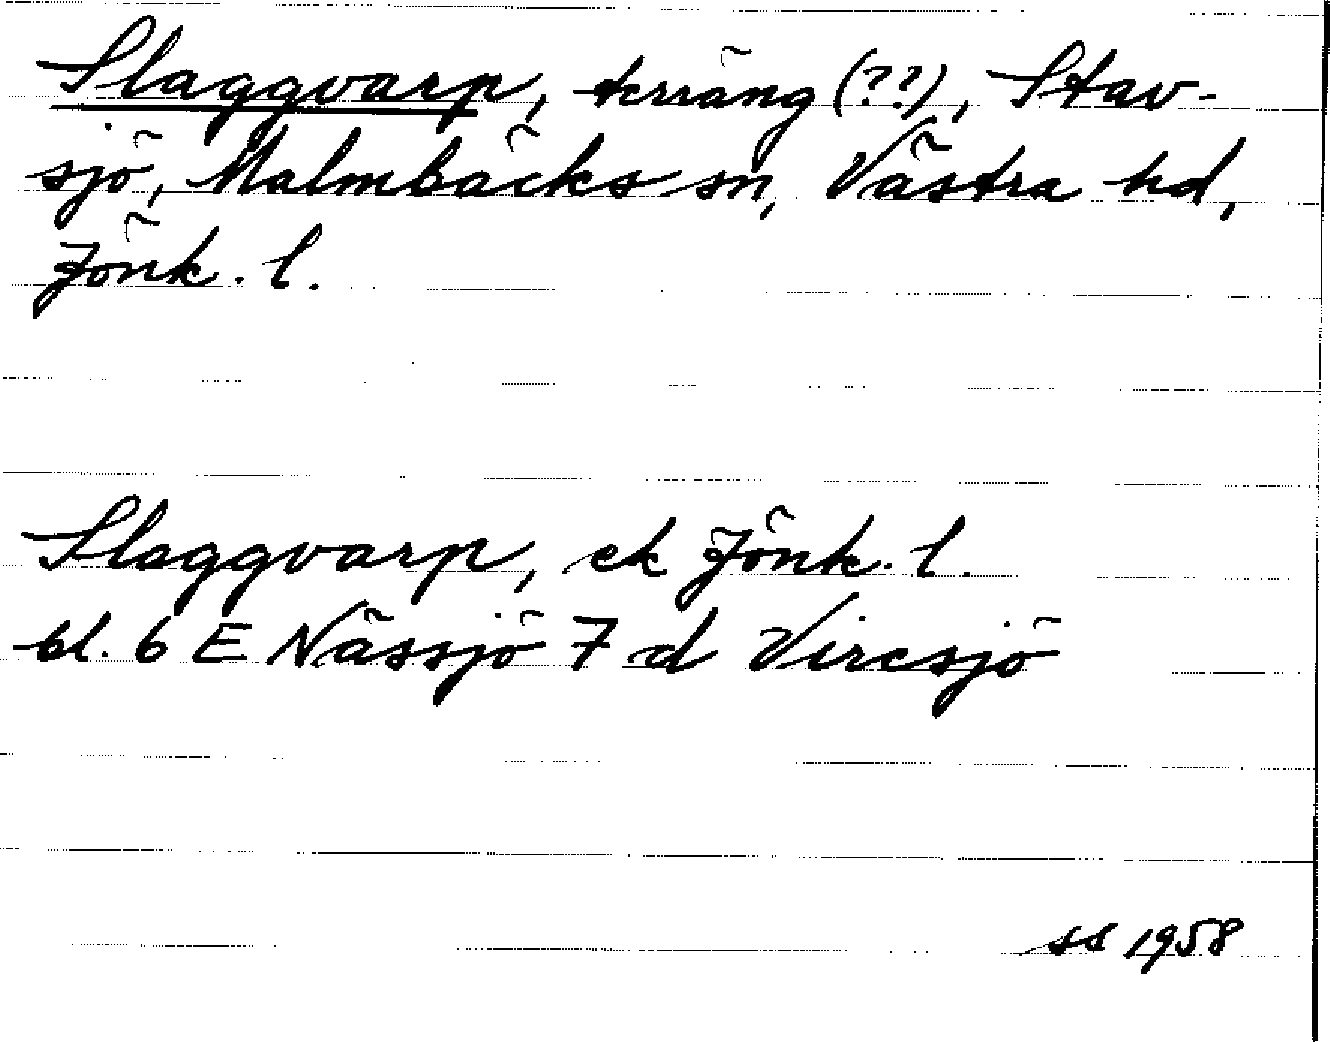 Slaggvarp, terräng (??), Stav-
sjö, Malmbäcks sn, Västra hd,
Jönk. l.
Slaggvarp, ek Jönk. l.
bl. 6 E Nässjö 7 d Vircsjö
ss 1958